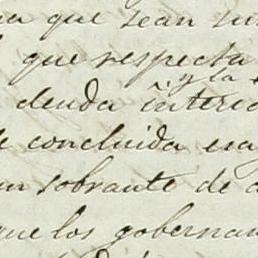 que sean
que respecta
y la
deuda interi
concluida esa
un sobrante de
que los gobernan